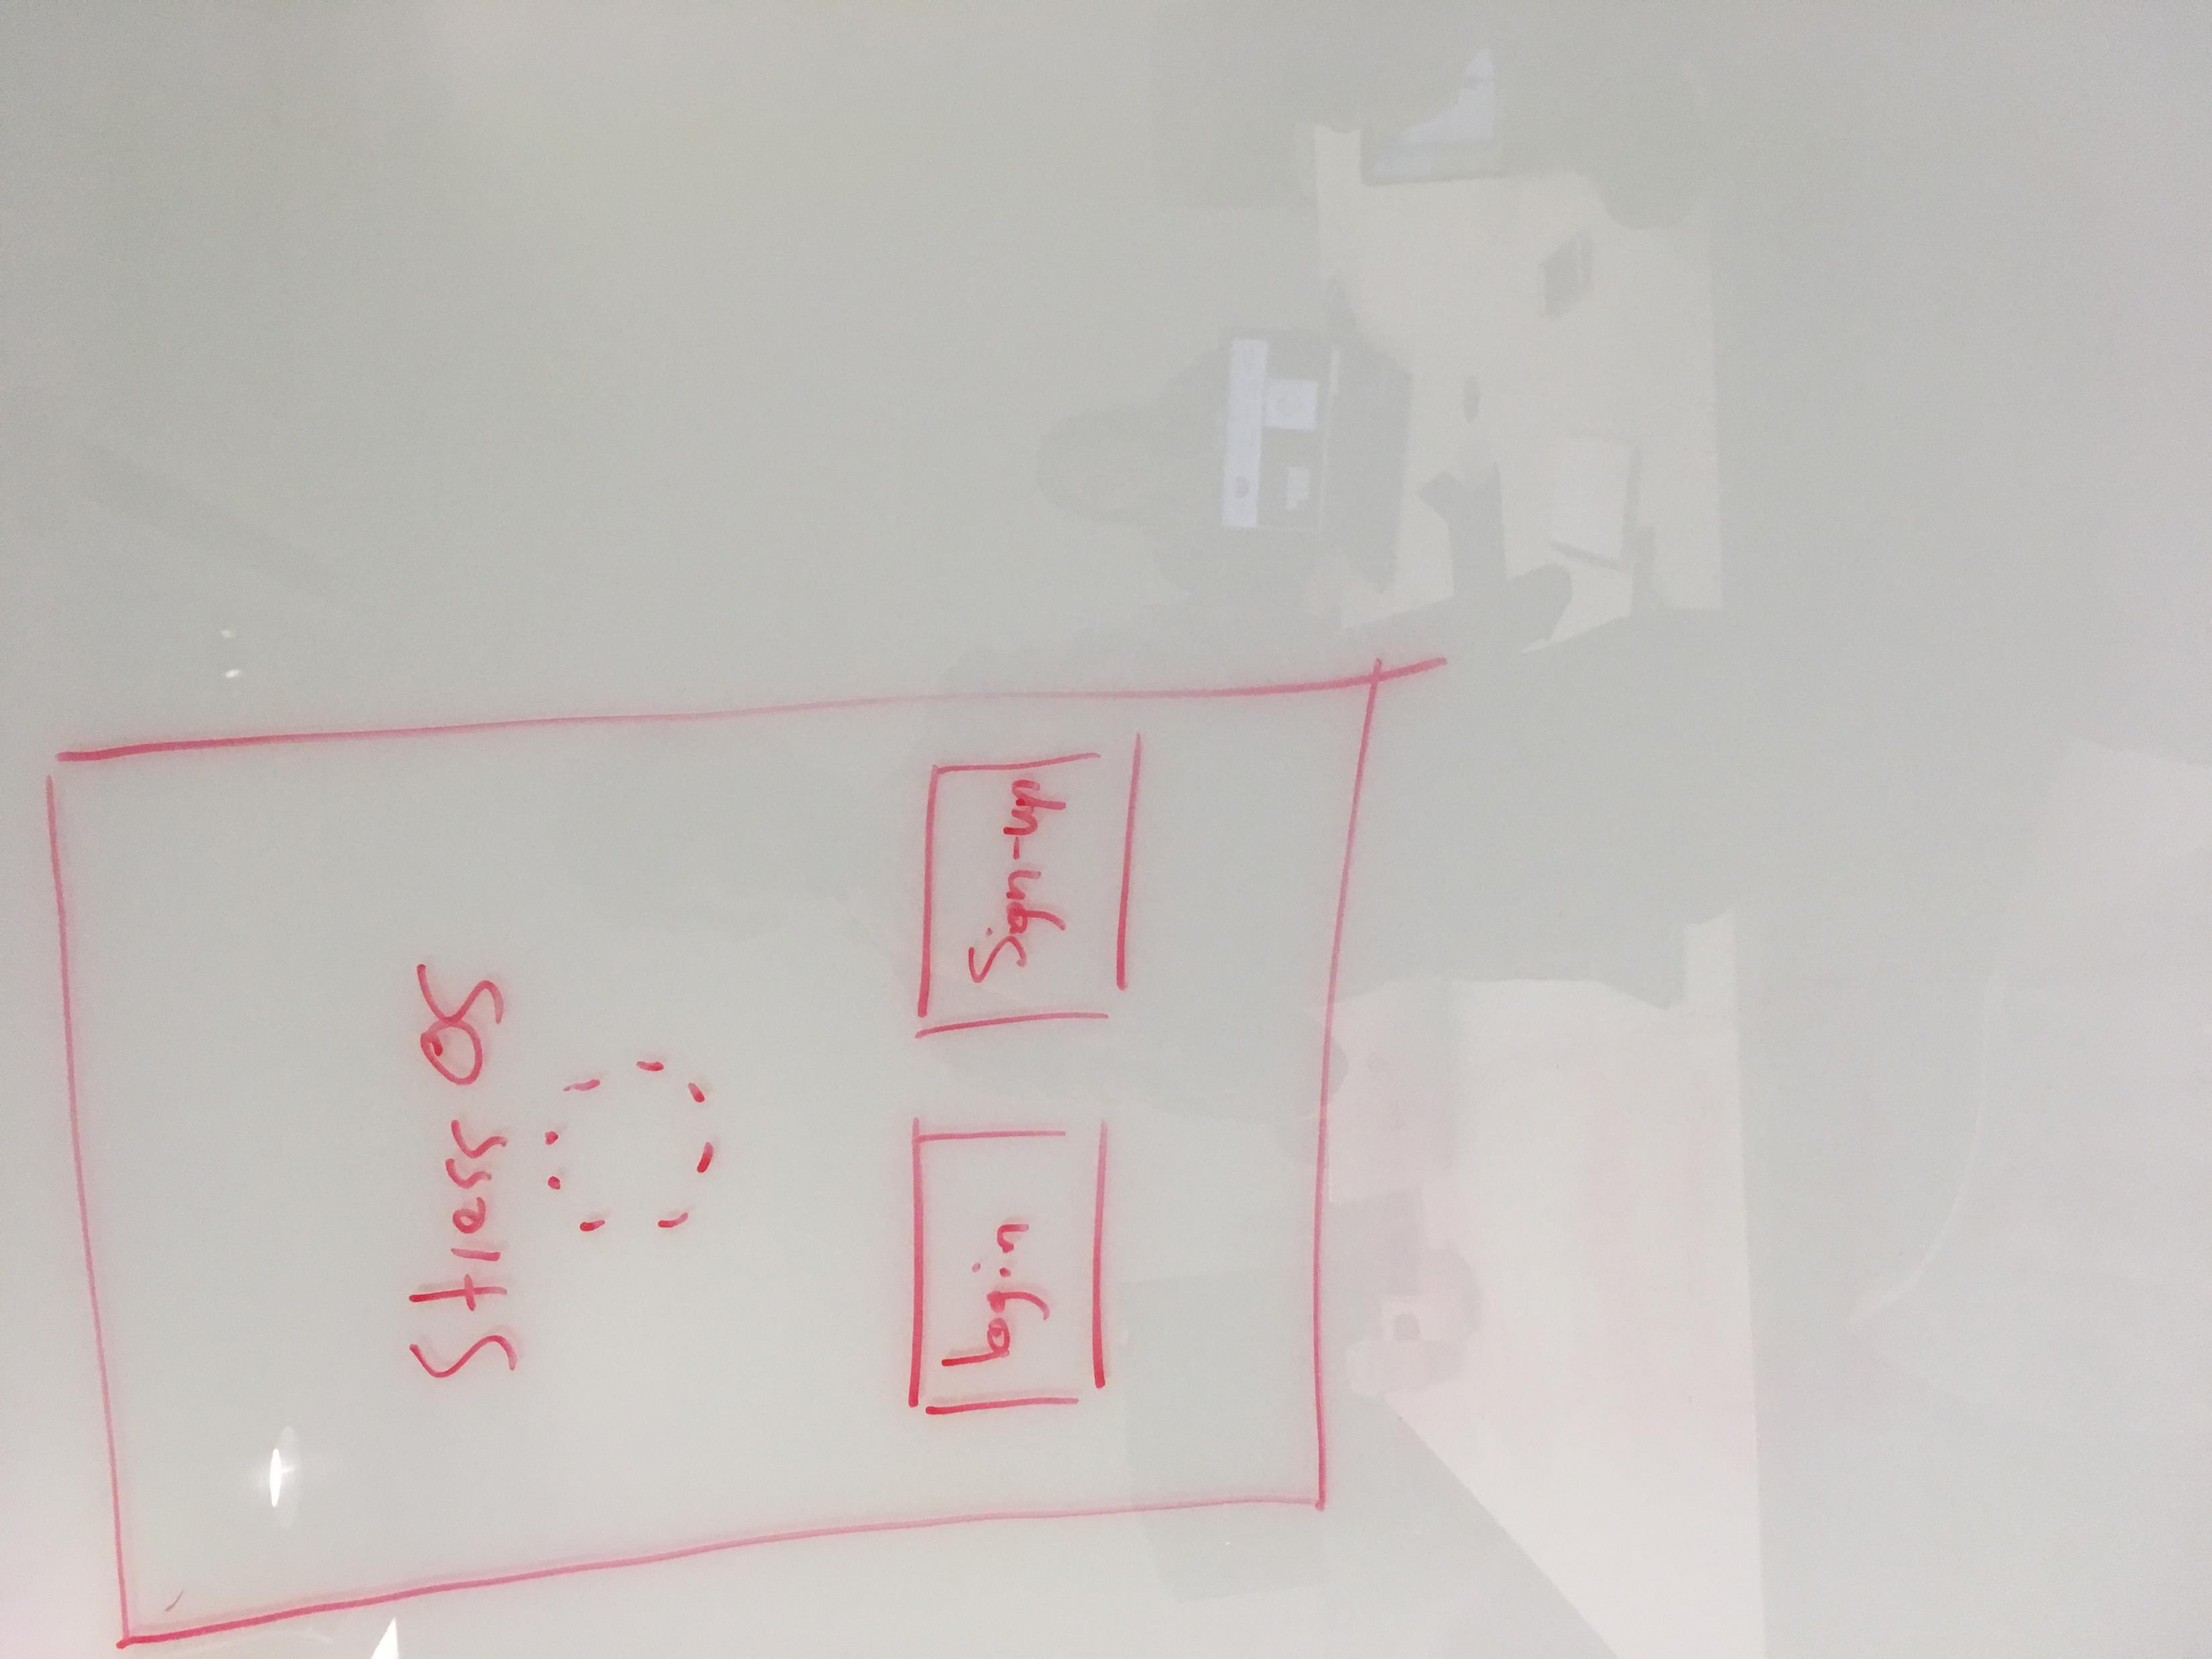 Stress OS
Login Sign-up